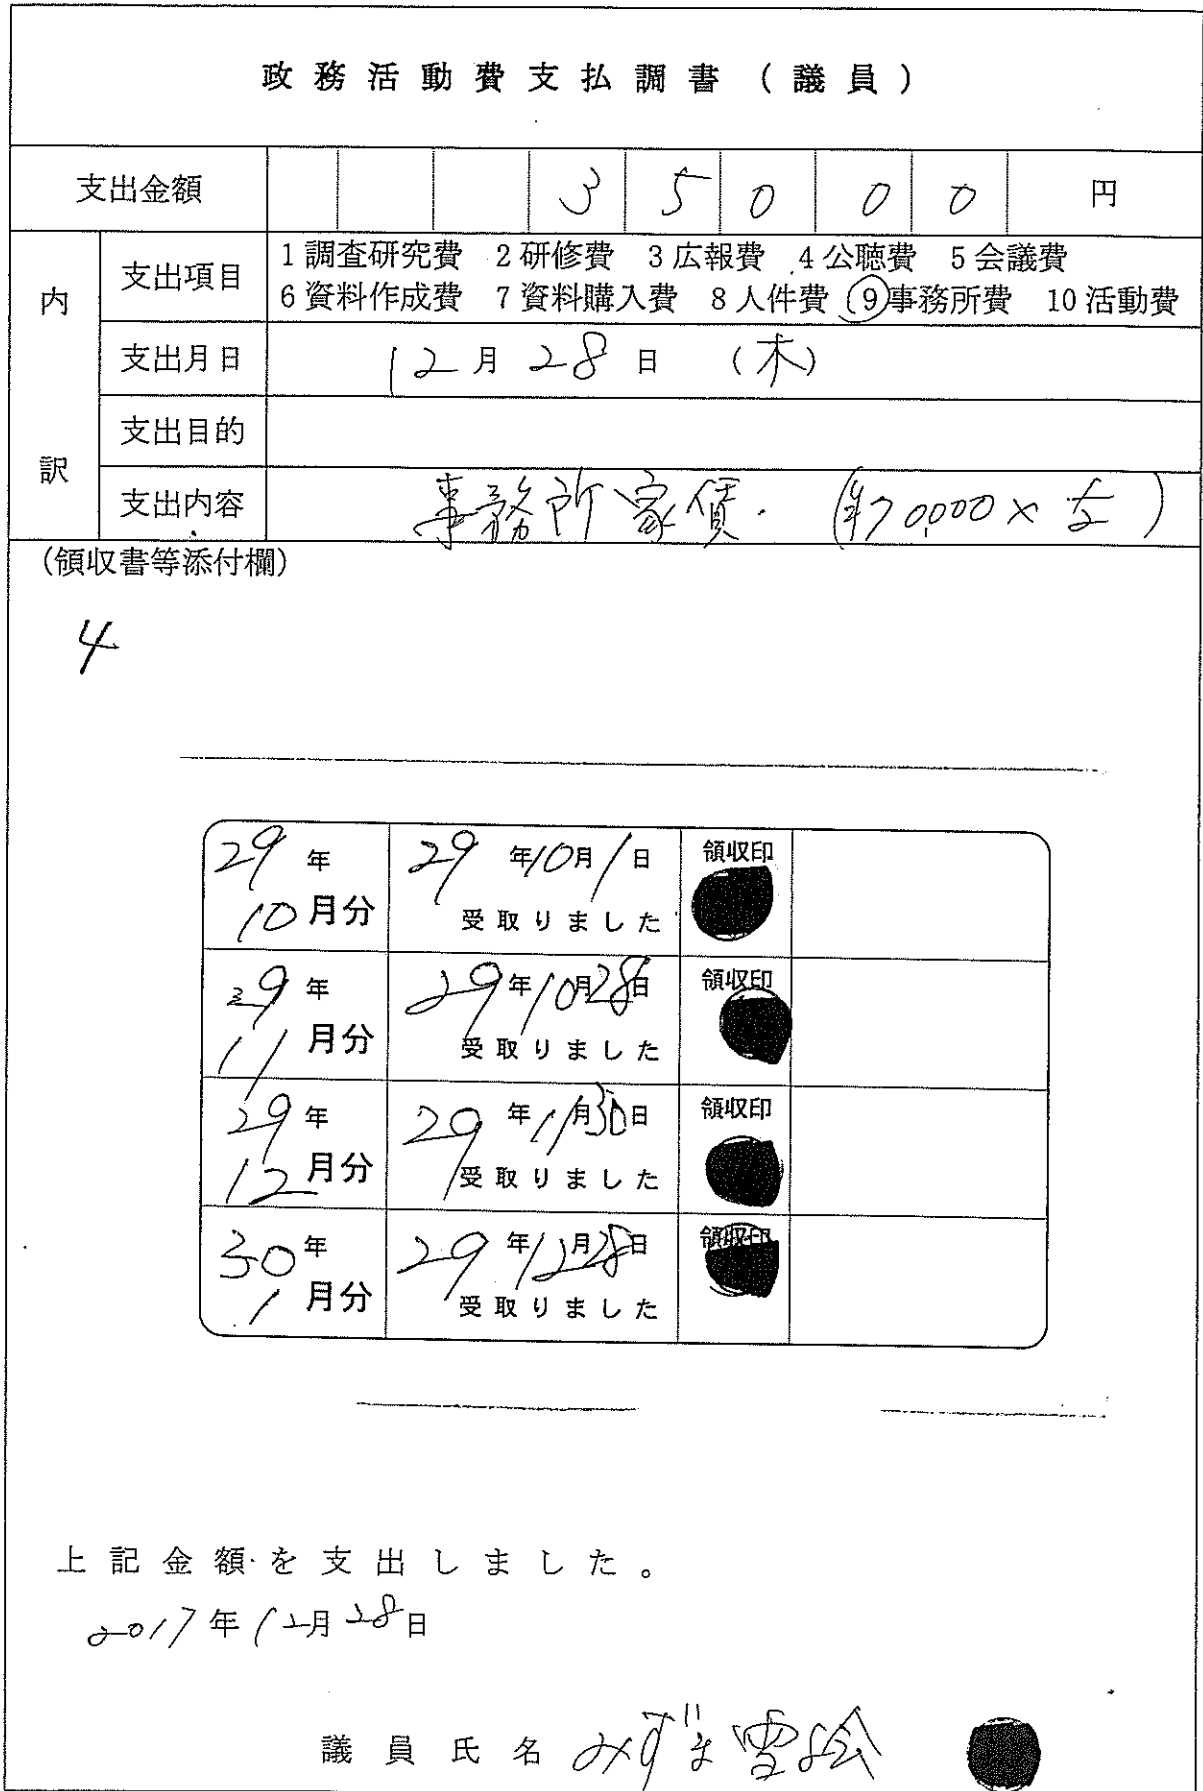 政務活動費支払調書(議員)
支出金額 35000円
内訳
支出項目 1調査研究費 2研修費 3広報費 4公聴費 5会議費
6資料作成費 7資料購入費 8人件費 ⑨事務所費 10活動費
支出月日 12月28日 (木)
支出目的
支出内容 事務所家賃. (¥70,000×½)
(領収書等添付欄)
4
29年10月分 29年10月1日受取りました 領収印
29年11月分 29年10月28日受取りました 領収印
29年12月分 29年11月30日受取りました 領収印
30年1月分 29年12月28日受取りました 領収印
上記金額を支出しました。
2017年12月28日
議員氏名 みずま雪絵